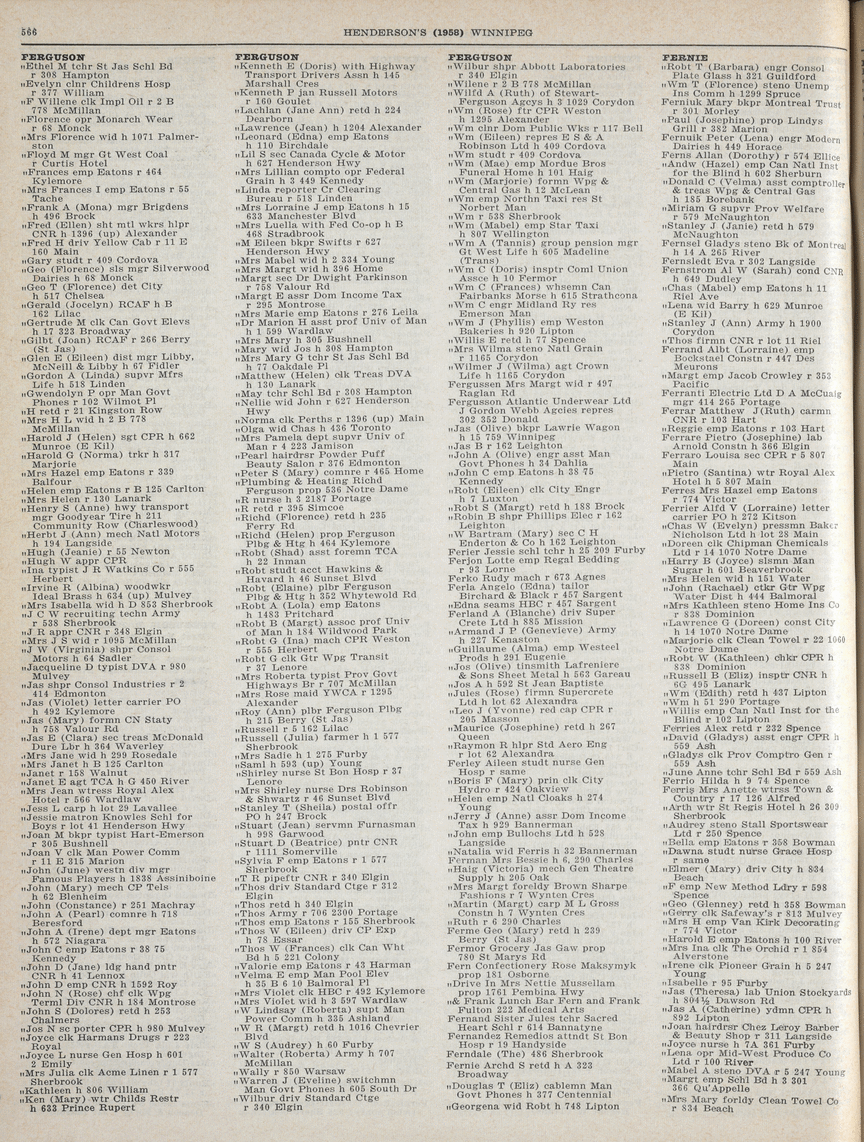 566
HENDERSON'S (1958) WINNIPEG
FERGUSON
"Ethel M tchr St Jas Schl Bd
r 308 Hampton
"Evelyn clnr Childrens Hosp
r 377 William
"F Willene clk Impl Oil r 2 B
778 McMillan
"Florence opr Monarch Wear
r 68 Monck
"Mrs Florence wid h 1071 Palmer-
ston
"Floyd M mgr Gt West Coal
r Curtis Hotel
"Frances emp Eatons r 464
Kylemore
"Mrs Frances I emp Eatons r 55
Tache
"Frank A (Mona) mgr Brigdens
h 496 Brock
"Fred (Ellen) sht mtl wkrs hlpr
CNR h 1396 (up) Alexander
"Fred H driv Yellow Cab r 11 E
160 Main
"Gary studt r 409 Cordova
"Geo (Florence) sls mgr Silverwood
Dairies h 68 Monck
"Geo T (Florence) det City
h 517 Chelsea
"Gerald (Jocelyn) RCAF h B
162 Lilac
"Gertrude M clk Can Govt Elevs
h 17 323 Broadway
"Gilbt (Joan) RCAF r 266 Berry
(St Jas)
"Glen E (Eileen) dist mgr Libby,
McNeill & Libby h 67 Fidler
"Gordon A (Linda) supvr Mfrs
Life h 518 Linden
"Gwendolyn P opr Man Govt
Phones r 102 Wilmot Pl
"H retd r 21 Kingston Row
"Mrs H L wid h 2 B 778
McMillan
"Harold J (Helen) sgt CPR h 662
Munroe (E Kil)
"Harold G (Norma) trkr h 317
Marjorie
"Mrs Hazel emp Eatons r 339
Balfour
"Helen emp Eatons r B 125 Carlton
"Mrs Helen r 130 Lanark
"Henry S (Anne) hwy transport
mgr Goodyear Tire h 211
Community Row (Charleswood)
"Herbt J (Ann) mech Natl Motors
h 194 Langside
"Hugh (Jeanie) r 55 Newton
"Hugh W appr CPR
"Ina typist J R Watkins Co r 555
Herbert
"Irvine R (Albina) woodwkr
Ideal Brass h 634 (up) Mulvey
"Mrs Isabella wid h D 853 Sherbrook
"J C W recruiting techn Army
r 538 Sherbrook
"J R appr CNR r 348 Elgin
"Mrs J S wid r 1095 McMillan
"J W (Virginia) shpr Consol
Motors h 64 Sadler
"Jacqueline D typist DVA r 980
Mulvey
"Jas shpr Consol Industries r 2
414 Edmonton
"Jas (Violet) letter carrier PO
h 492 Kylemore
"Jas (Mary) formn CN Staty
h 758 Valour Rd
"Jas E (Clara) sec treas McDonald
Dure Lbr h 364 Waverley
"Mrs Jane wid h 299 Rosedale
"Mrs Janet h B 125 Carlton
"Janet r 158 Walnut
"Janet E agt TCA h G 450 River
"Mrs Jean wtress Royal Alex
Hotel r 566 Wardlaw
"Jess L carp h lot 29 Lavallee
"Jessie matron Knowles Schl for
Boys r lot 41 Henderson Hwy
"Joan M bkpr typist Hart-Emerson
r 305 Bushnell
"Joan V clk Man Power Comm
r 11 E 315 Marion
"John (June) westn div mgr
Famous Players h 1838 Assiniboine
"John (Mary) mech CP Tels
h 62 Blenheim
"John (Constance) r 251 Machray
"John A (Pearl) comnre h 718
Beresford
"John A (Irene) dept mgr Eatons
h 572 Niagara
"John C emp Eatons r 38 75
Kennedy
"John D (Jane) ldg hand pntr
CNR h 41 Lennox
"John D emp CNR h 1592 Roy
"John N (Rose) chf clk Wpg
Terml Div CNR h 184 Montrose
"John S (Dolores) retd h 253
Chalmers
"Jos N sc porter CPR h 980 Mulvey
"Joyce clk Harmans Drugs r 223
Royal
"Joyce L nurse Gen Hosp h 601
2 Emily
"Mrs Julia clk Acme Linen r 1 577
Sherbrook
"Kathleen h 806 William
"Ken (Mary) wtr Childs Restr
h 633 Prince Rupert
FERGUSON
"Kenneth E (Doris) with Highway
Transport Drivers Assn h 145
Marshall Cres
"Kenneth P jan Russell Motors
r 160 Goulet
"Lachlan (Jane Ann) retd h 224
Dearborn
"Lawrence (Jean) h 1204 Alexander
"Leonard (Edna) emp Eatons
h 110 Birchdale
"Lil S sec Canada Cycle & Motor
h 627 Henderson Hwy
"Mrs Lillian compto opr Federal
Grain h 3 449 Kennedy
"Linda reporter Cr Clearing
Bureau r 518 Linden
"Mrs Lorraine J emp Eatons h 15
633 Manchester Blvd
"Mrs Luella with Fed Co-op h B
468 Stradbrook
"M Eileen bkpr Swifts r 627
Henderson Hwy
"Mrs Mabel wid h 2 334 Young
"Mrs Margt wid h 396 Home
"Margt sec Dr Dwight Parkinson
r 758 Valour Rd
"Margt E assr Dom Income Tax
r 295 Montrose
"Mrs Marie emp Eatons r 276 Leila
"Dr Marion H asst prof Univ of Man
h 1 599 Wardlaw
"Mrs Mary h 305 Bushnell
"Mary wid Jos h 308 Hampton
"Mrs Mary G tchr St Jas Schl Bd
h 77 Oakdale Pl
"Matthew (Helen) clk Treas DVA
h 130 Lanark
"May tchr Schl Bd r 308 Hampton
"Nellie wid John r 627 Henderson
Hwy
"Norma clk Perths r 1396 (up) Main
"Olga wid Chas h 436 Toronto
"Mrs Pamela dept supvr Univ of
Man r 4 223 Jamison
"Pearl hairdrsr Powder Puff
Beauty Salon r 376 Edmonton
"Peter S (Mary) comnre r 465 Home
"Plumbing & Heating Richd
Ferguson prop 536 Notre Dame
"R nurse h 3 2187 Portage
"R retd r 395 Simcoe
"Richd (Florence) retd h 235
Ferry Rd
"Richd (Helen) prop Ferguson
Plbg & Htg h 464 Kylemore
"Robt (Shad) asst foremn TCA
h 22 Inman
"Robt studt acct Hawkins &
Havard h 46 Sunset Blvd
"Robt (Elaine) plbr Ferguson
Plbg & Htg h 352 Whytewold Rd
"Robt A (Lola) emp Eatons
h 1483 Pritchard
"Robt B (Margt) assoc prof Univ
of Man h 184 Wildwood Park
"Robt G (Ina) mach CPR Weston
r 555 Herbert
"Robt G clk Gtr Wpg Transit
r 37 Lenore
"Mrs Roberta typist Prov Govt
Highways Br r 707 McMillan
"Mrs Rose maid YWCA r 1295
Alexander
"Roy (Ann) plbr Ferguson Plbg
h 215 Berry (St Jas)
"Russell r 5 162 Lilac
"Russell (Julia) farmer h 1 577
Sherbrook
"Mrs Sadie h 1 275 Furby
"Saml h 593 (up) Young
"Shirley nurse St Bon Hosp r 37
Lenore
"Mrs Shirley nurse Drs Robinson
& Shwartz r 46 Sunset Blvd
"Stanley T (Sheila) postal offr
PO h 247 Brock
"Stuart (Jean) servmn Furnasman
h 998 Garwood
"Stuart D (Beatrice) pntr CNR
r 1111 Somerville
"Sylvia F emp Eatons r 1 577
Sherbrook
"T R pipeftr CNR r 340 Elgin
"Thos driv Standard Ctge r 312
Elgin
"Thos retd h 340 Elgin
"Thos Army r 706 2300 Portage
"Thos emp Eatons r 155 Sherbrook
"Thos W (Eileen) driv CP Exp
h 78 Essar
"Thos W (Frances) clk Can Wht
Bd h 5 221 Colony
"Valorie emp Eatons r 43 Harman
"Velma E emp Man Pool Elev
h 35 B 6 10 Balmoral Pl
"Mrs Violet clk HBC r 492 Kylemore
"Mrs Violet wid h 3 597 Wardlaw
"W Lindsay (Roberta) supt Man
Power Comm h 335 Ashland
"W R (Margt) retd h 1016 Chevrier
Blvd
"W S (Audrey) h 60 Furby
"Walter (Roberta) Army h 707
McMillan
"Wally r 850 Warsaw
"Warren J (Eveline) switchmn
Man Govt Phones h 605 South Dr
"Wilbur driv Standard Ctge
r 340 Elgin
FERGUSON
"Wilbur shpr Abbott Laboratories
r 340 Elgin
"Wilene r 2 B 778 McMillan
"Wilfd A (Ruth) of Stewart-
Ferguson Agcys h 3 1029 Corydon
"Wm (Rose) ftr CPR Weston
h 1295 Alexander
"Wm clnr Dom Public Wks r 117 Bell
"Wm (Eileen) repres E S & A
Robinson Ltd h 409 Cordova
"Wm studt r 409 Cordova
"Wm (Mae) emp Mordue Bros
Funeral Home h 101 Haig
"Wm (Marjorie) formn Wpg &
Central Gas h 12 McLean
"Wm emp Northn Taxi res St
Norbert Man
"Wm r 538 Sherbrook
"Wm (Mabel) emp Star Taxi
h 807 Wellington
"Wm A (Tannis) group pension mgr
Gt West Life h 605 Madeline
(Trans)
"Wm C (Doris) insptr Coml Union
Assce h 10 Fermor
"Wm C (Frances) whsemn Can
Fairbanks Morse h 615 Strathcona
"Wm C engr Midland Ry res
Emerson Man
"Wm J (Phyllis) emp Weston
Bakeries h 920 Lipton
"Willis E retd h 77 Spence
"Mrs Wilma steno Natl Grain
r 1165 Corydon
"Wilmer J (Wilma) agt Crown
Life h 1165 Corydon
Fergussen Mrs Margt wid r 497
Raglan Rd
Fergusson Atlantic Underwear Ltd
J Gordon Webb Agcies repres
302 352 Donald
"Jas (Olive) bkpr Lawrie Wagon
h 15 759 Winnipeg
"Jas B r 162 Leighton
"John A (Olive) engr asst Man
Govt Phones h 34 Dahlia
"John C emp Eatons h 38 75
Kennedy
"Robt (Eileen) clk City Engr
h 7 Luxton
"Robt S (Margt) retd h 188 Brock
"Robin B shpr Phillips Elec r 162
Leighton
"W Bartram (Mary) sec C H
Enderton & Co h 162 Leighton
Ferier Jessie schl tchr h 25 209 Furby
Ferjon Lotte emp Regal Bedding
r 93 Lorne
Ferko Rudy mach r 673 Agnes
Ferla Angelo (Edna) tailor
Birchard & Black r 457 Sargent
"Edna seams HBC r 457 Sargent
Ferland A (Blanche) driv Super
Crete Ltd h 885 Mission
"Armand J P (Genevieve) Army
h 227 Kenaston
"Guillaume (Alma) emp Westeel
Prods h 291 Eugenie
"Jos (Olive) tinsmith Lafreniere
& Sons Sheet Metal h 563 Gareau
"Jos A h 592 St Jean Baptiste
"Jules (Rose) firmn Supercrete
Ltd h lot 62 Alexandra
"Leo J (Yvonne) red cap CPR r
205 Masson
"Maurice (Josephine) retd h 267
Queen
"Raymon R hlpr Std Aero Eng
r lot 62 Alexandra
Ferley Aileen studt nurse Gen
Hosp r same
"Boris F (Mary) prin clk City
Hydro r 424 Oakview
"Helen emp Natl Cloaks h 274
Young
"Jerry J (Anne) assr Dom Income
Tax h 929 Bannerman
"John emp Bullochs Ltd h 528
Langside
"Natalia wid Ferris h 32 Bannerman
Ferman Mrs Bessie h 6, 290 Charles
"Haig (Victoria) mech Gen Theatre
Supply h 205 Oak
"Mrs Margt foreldy Brown Sharpe
Fashions r 7 Wynten Cres
"Martin (Margt) carp M L Gross
Constn h 7 Wynten Cres
"Ruth r 6 290 Charles
Ferme Geo (Mary) retd h 239
Berry (St Jas)
Fermor Grocery Jas Gaw prop
780 St Marys Rd
Fern Confectionery Rose Maksymyk
prop 181 Osborne
"Drive In Mrs Nettie Mussellam
prop 1761 Pembina Hwy
"& Frank Lunch Bar Fern and Frank
Fulton 222 Medical Arts
Fernand Sister Jules tchr Sacred
Heart Schl r 614 Bannatyne
Fernandez Remedios attndt St Bon
Hosp r 19 Handyside
Ferndale (The) 486 Sherbrook
Fernie Archd S retd h A 323
Broadway
"Douglas T (Eliz) cablemn Man
Govt Phones h 377 Centennial
"Georgena wid Robt h 748 Lipton
FERNIE
"Robt T (Barbara) engr Consol
Plate Glass h 321 Guildford
"Wm T (Florence) steno Unemp
Ins Comm h 1299 Spruce
Ferniuk Mary bkpr Montreal Trust
r 301 Morley
"Paul (Josephine) prop Lindys
Grill r 382 Marion
Fernuik Peter (Lena) engr Modern
Dairies h 449 Horace
Ferns Allan (Dorothy) r 574 Ellice
"Andw (Hazel) emp Can Natl Inst
for the Blind h 602 Sherburn
"Donald C (Velma) asst comptroller
& treas Wpg & Central Gas
h 185 Borebank
"Miriam G supvr Prov Welfare
r 579 McNaughton
"Stanley J (Janie) retd h 579
McNaughton
Fernsel Gladys steno Bk of Montreal
h 14 A 265 River
Fernsledt Eva r 302 Langside
Fernstrom Al W (Sarah) cond CNR
h 649 Dudley
"Chas (Mabel) emp Eatons h 11
Riel Ave
"Lena wid Barry h 629 Munroe
(E Kil)
"Stanley J (Ann) Army h 1900
Corydon
"Thos firmn CNR r lot 11 Riel
Ferrand Albt (Lorraine) emp
Bockstael Constn r 447 Des
Meurons
"Margt emp Jacob Crowley r 353
Pacific
Ferranti Electric Ltd D A McCuaig
mgr 414 265 Portage
Ferrar Matthew J(Ruth) carmn
CNR r 103 Hart
"Reggie emp Eatons r 103 Hart
Ferrare Pietro (Josephine) lab
Arnold Constn h 366 Elgin
Ferraro Louisa sec CPR r 5 807
Main
"Pietro (Santina) wtr Royal Alex
Hotel h 5 807 Main
Ferres Mrs Hazel emp Eatons
r 774 Victor
Ferrier Alfd V (Lorraine) letter
carrier PO h 272 Kitson
"Chas W (Evelyn) pressmn Baker
Nicholson Ltd h lot 28 Main
"Doreen clk Chipman Chemicals
Ltd r 14 1070 Notre Dame
"Harry B (Joyce) slsmn Man
Sugar h 601 Beaverbrook
"Mrs Helen wid h 151 Water
"John (Rachael) ctkr Gtr Wpg
Water Dist h 444 Balmoral
"Mrs Kathleen steno Home Ins Co
r 838 Dominion
"Lawrence G (Doreen) const City
h 14 1070 Notre Dame
"Marjorie clk Clean Towel r 22 1060
Notre Dame
"Robt W (Kathleen) chkr CPR h
838 Dominion
"Russell B (Eliz) insptr CNR h
6G 495 Lanark
"Wm (Edith) retd h 437 Lipton
"Wm h 51 290 Portage
"Willis emp Can Natl Inst for the
Blind r 102 Lipton
Ferries Alex retd r 232 Spence
"David (Gladys) asst engr CPR h
559 Ash
"Gladys clk Prov Comptro Gen r
559 Ash
"June Anne tchr Schl Bd r 559 Ash
Ferrio Hilda h 9 74 Spence
Ferris Mrs Anette wtrss Town &
Country r 17 126 Alfred
"Arth wtr St Regis Hotel h 26 309
Sherbrook
"Audrey steno Stall Sportswear
Ltd r 250 Spence
"Bella emp Eatons r 358 Bowman
"Dawna studt nurse Grace Hosp
r same
"Elmer (Mary) driv City h 834
Beach
"F emp New Method Ldry r 598
Spence
"Geo (Glenney) retd h 358 Bowman
"Gerry clk Safeway's r 813 Mulvey
"Mrs H emp Van Kirk Decorating
r 774 Victor
"Harold E emp Eatons h 100 River
"Mrs Ina clk The Orchid r 1 854
Alverstone
"Irene clk Pioneer Grain h 5 247
Young
"Isabelle r 95 Furby
"Jas (Theresa) lab Union Stockyards
h 804½ Dawson Rd
"Jas A (Catherine) ydmn CPR h
892 Lipton
"Joan hairdrsr Chez Leroy Barber
& Beauty Shop r 311 Langside
"Joyce nurse h 7A 361 Furby
"Lena opr Mid-West Produce Co
Ltd r 100 River
"Mabel A steno DVA r 5 247 Young
"Margt emp Schl Bd h 3 301
366 Qu'Appelle
"Mrs Mary forldy Clean Towel Co
r 834 Beach